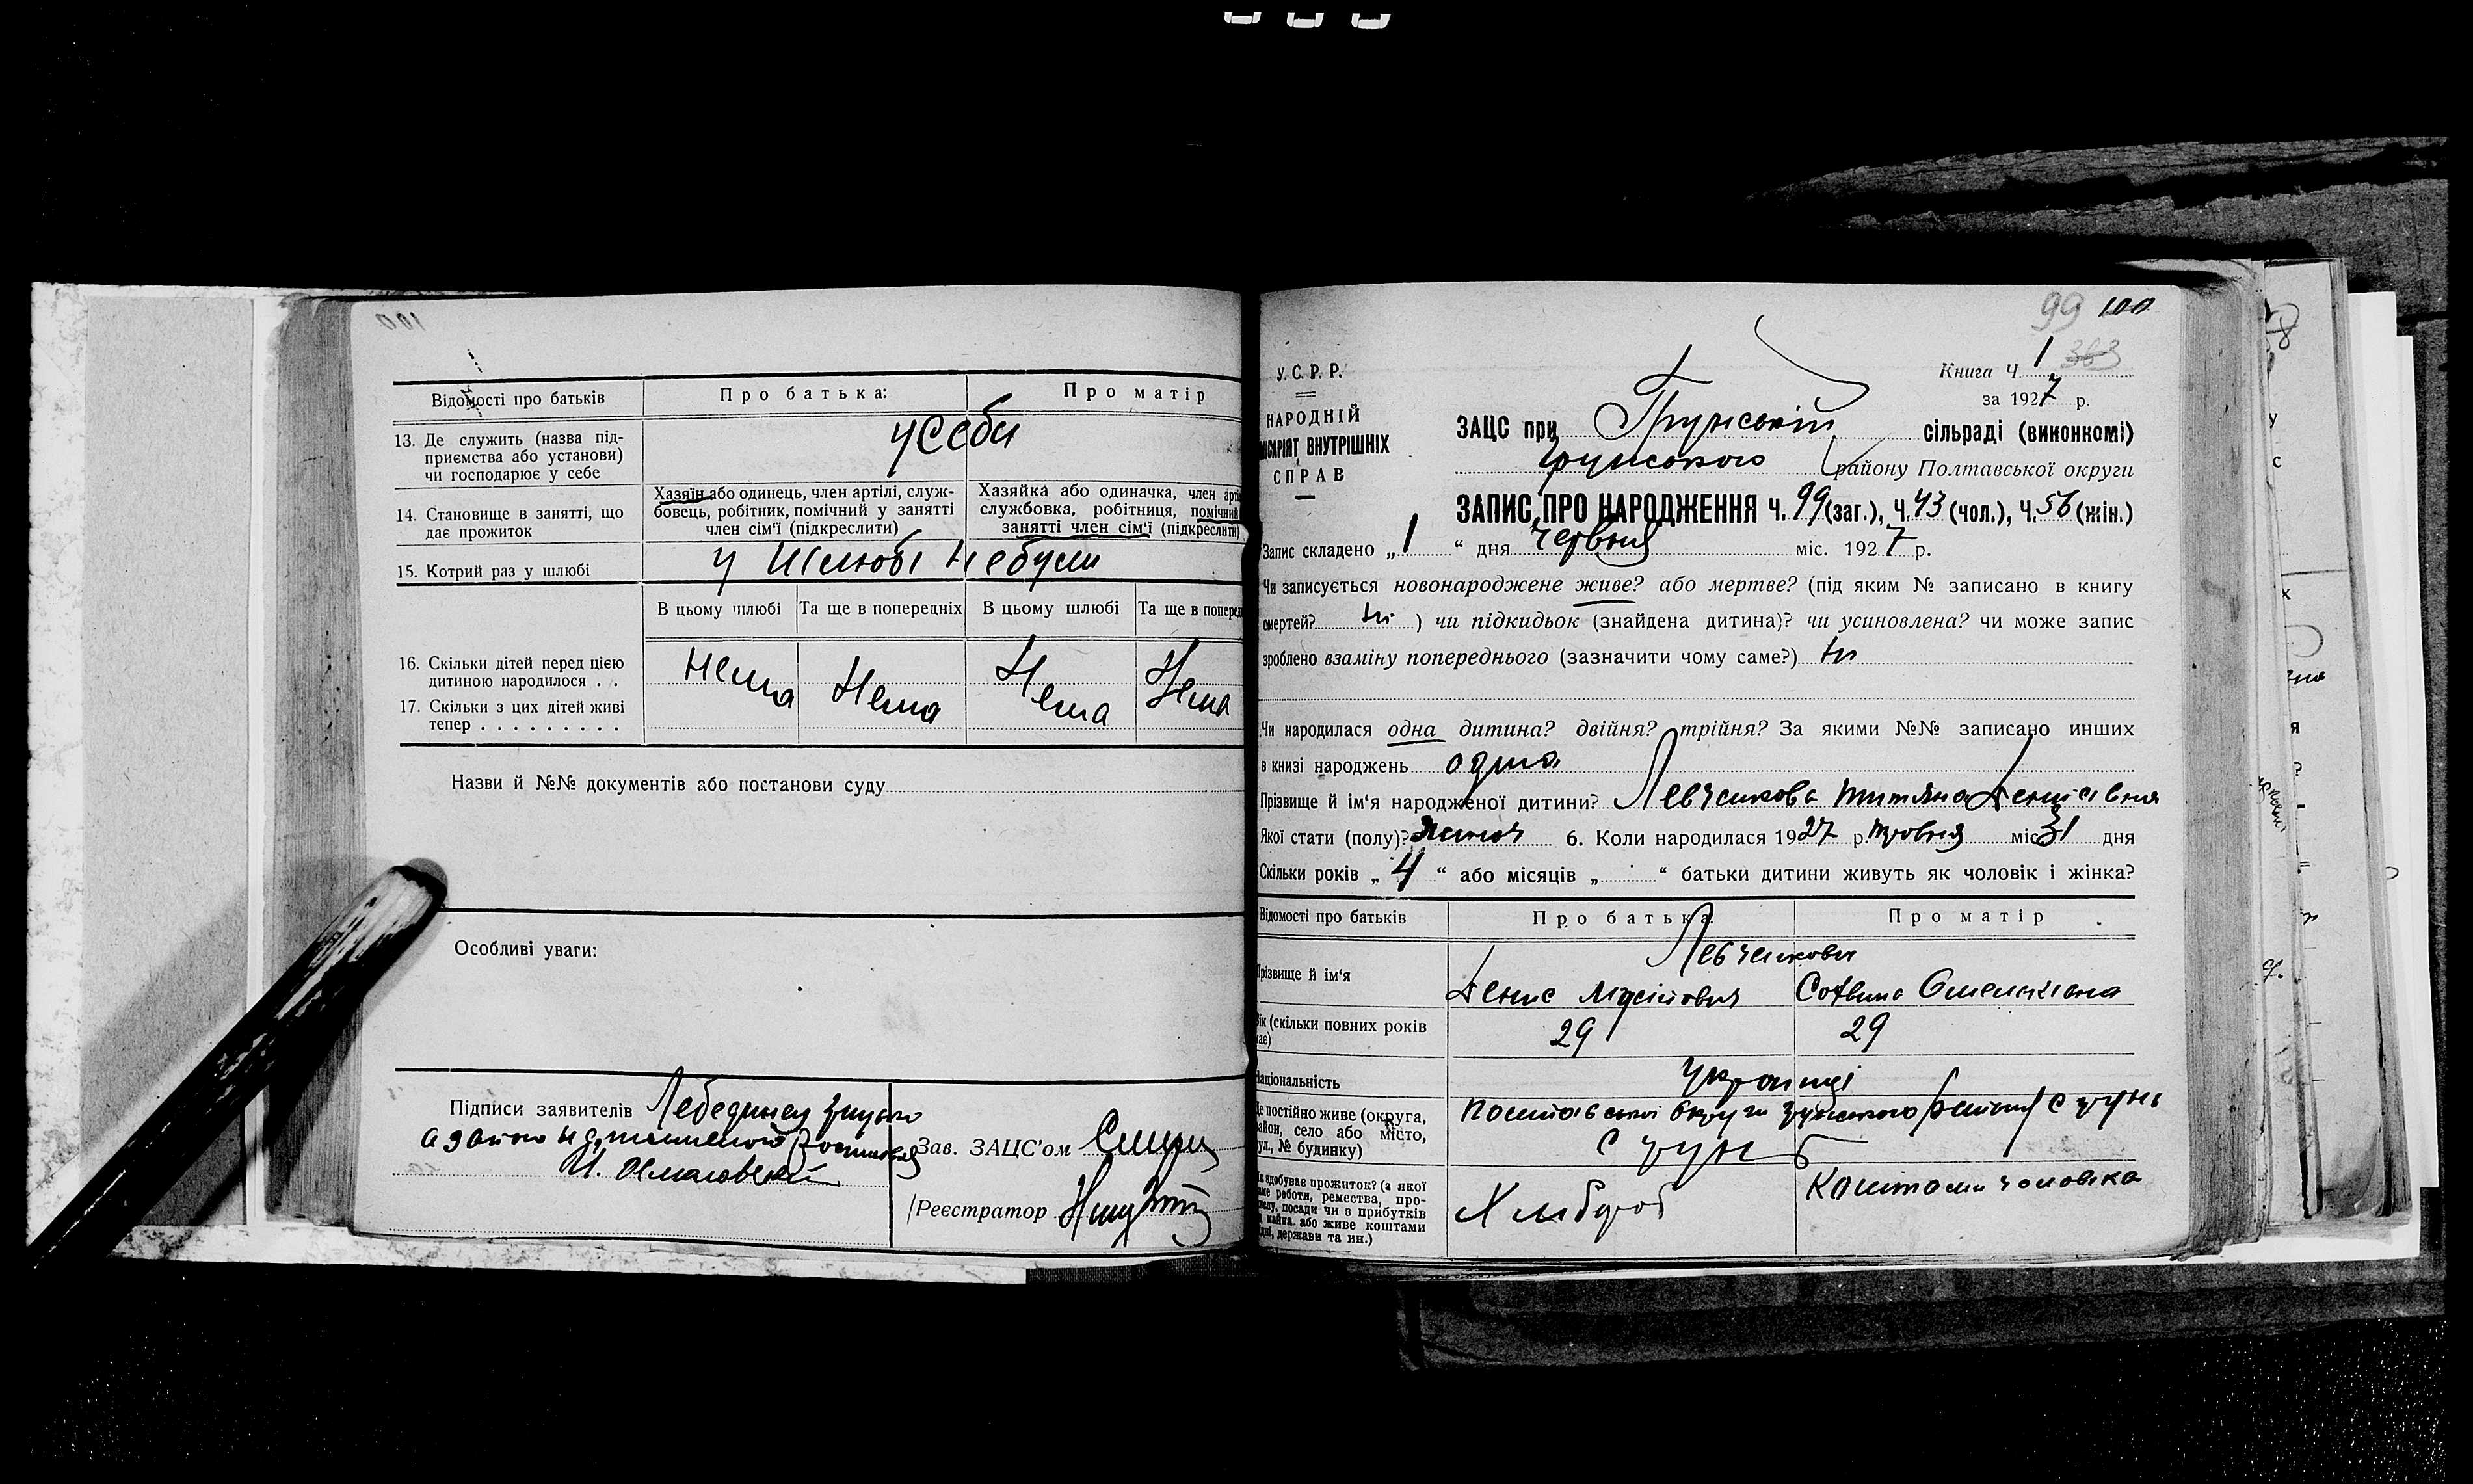 Відомості про батьків
Про батька:
Про матір
13. Де служить (назва під-
приємства або установи)
чи господарює у себе
у себи
14. Становище в занятті, що
дає прожиток
Хазяїн або одинець, член артілі, служ-
бовець, робітник, помічний у занятті
член сім'ї (підкреслити)
Хазяйка або одиначка, член арті
службовка, робітниця, помічний
занятті член сім'ї (підкреслити)
15. Котрий раз у шлюбі
у шлюбі небули
В цьому шлюбі
Та ще в попередніх
В цьому шлюбі
Та ще в поперед
16. Скільки дітей перед цією
дитиною народилося . .
17. Скільки з цих дітей живі
тепер . . . . . . . . .
Нема
Нема
Нема
Нема
Назви й №№ документів або постанови суду
Особливі уваги:
Підписи заявителів
Зав. ЗАЦС'ом
Реєстратор
99 100
У.С.Р.Р.
НАРОДНІЙ
МІСАРІЯТ ВНУТРІШНІХ
СПРАВ
Книга Ч. 1 363
за 1927 р.
ЗАЦС при Грунській сільраді (виконкомі)
Грунського району Полтавської округи
ЗАПИС ПРО НАРОДЖЕННЯ Ч. 99 (заг.), Ч. 43 (чол.), Ч. 56 (жін.)
Запис складено „1“ дня червня міс. 1927 р.
Чи записується новонароджене живе? або мертве? (під яким № записано в книгу
смертей? ни ) чи підкидьок (знайдена дитина)? чи усиновлена? чи може запис
зроблено взаміну попереднього (зазначити чому саме?) ни
Чи народилася одна дитина? двійня? трійня? За якими №№ записано инших
в книзі народжень одна
Прізвище й ім'я народженої дитини? Левченкова Титяна Денисівна
Якої стати (полу)? Жиноч 6. Коли народилася 1927 р. травня міс 31 дня
Скільки років „4“ або місяців „ “ батьки дитини живуть як чоловік і жінка?
Відомості про батьків
Про батька
Про матір
Прізвище й ім'я
Левченкови
Денис Мусійович
Софина Омельківна
Вік (скільки повних років
має)
29
29
Національність
Українці
Де постійно живе (округа,
район, село або місто,
вул., № будинку)
Полтавської округи Грунського району с Грунь
с Грунь
Як здобуває прожиток? (з якої
саме роботи, ремества, про-
мислу, посади чи з прибутків
з майна, або живе коштами
рідні, держави та ин.)
Хлибороб
Коштами чоловіка